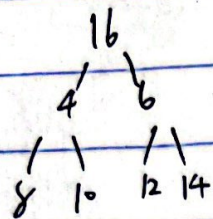 16
4 6
8 10 12 14